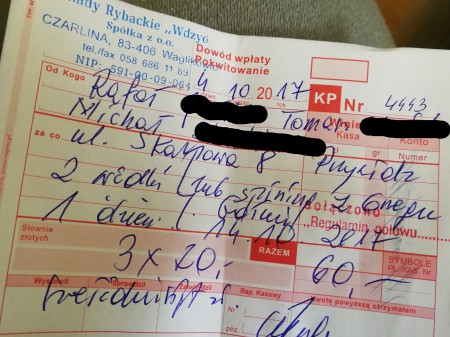 łady Rybackie „Wdzyd
Spółka z o.o.
CZARLINA, 83-406 Wąglikowice
tel./fax 058 686 11 89
NIP: 591-00-09-064
Dowód wpłaty
Pokwitowanie
4 10 2017 rok
KP Nr 4443
Od Kogo Rafał
Michał Tomasz
Winien Konto
Kasa
za co ul. Skarpowa 8 Przywidz
gr Numer
2 wędki lub spining z brzegu
1 dzień 14.10.2017
Dołączono
"Regulamin połowu"
Słownie złotych
3 x 20,-
RAZEM 60,-
SYMBOLE PL. KAS. Nr
Wystawił Sprawdził Zatwierdził Rap. Kasowy
Kwotę powyższą otrzymałem
sześćdziesiąt zł
Nr
poz.